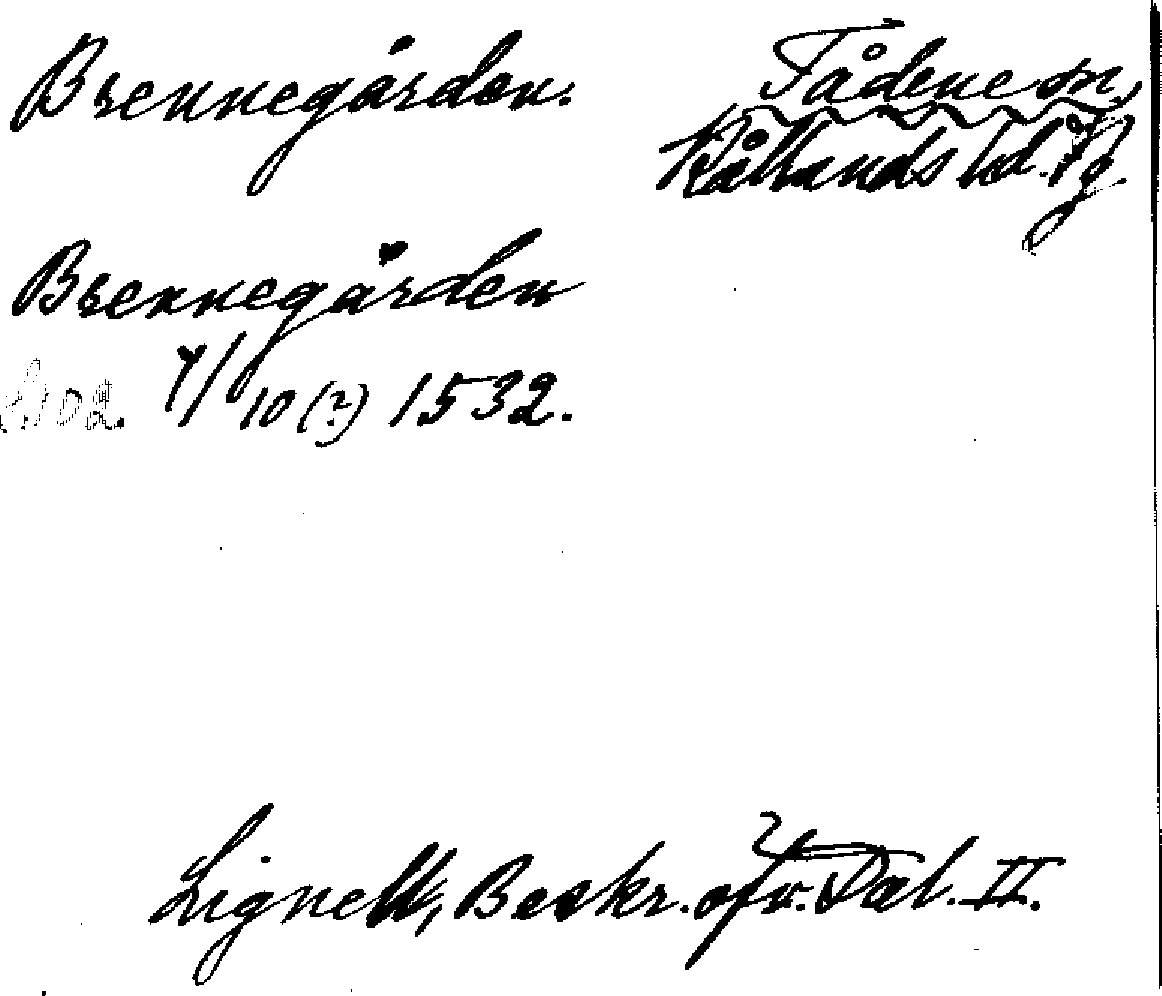 Brennegården.
Tådene sn,
Kållands hd. Vg.
Brennegården
7/10 (?) 1532.
Lignell, Beskr. ofv. Dal. II.